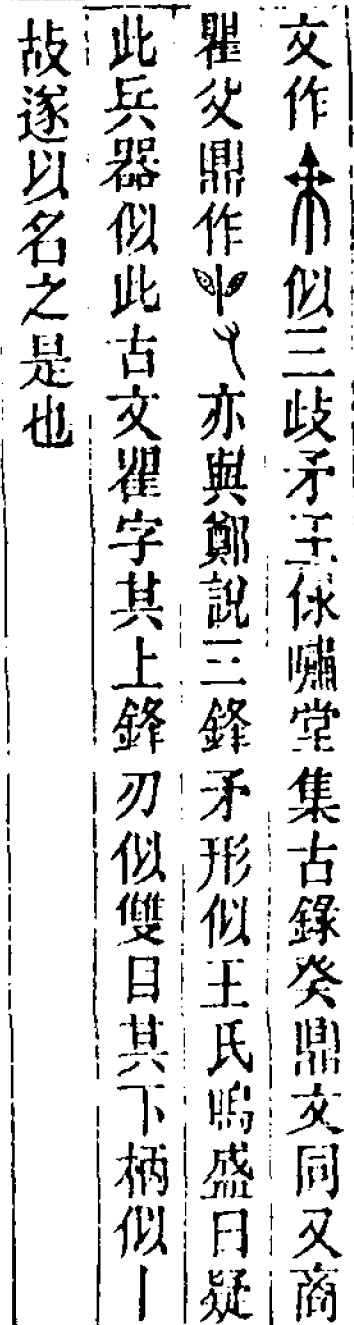 文作似三歧矛王俅嘯堂集古錄癸鼎文同又商
瞿父鼎作亦與鄭說三鋒矛形似王氏鳴盛曰疑
此兵器似此古文瞿字其上鋒刃似雙目其下柄似丨
故遂以名之是也